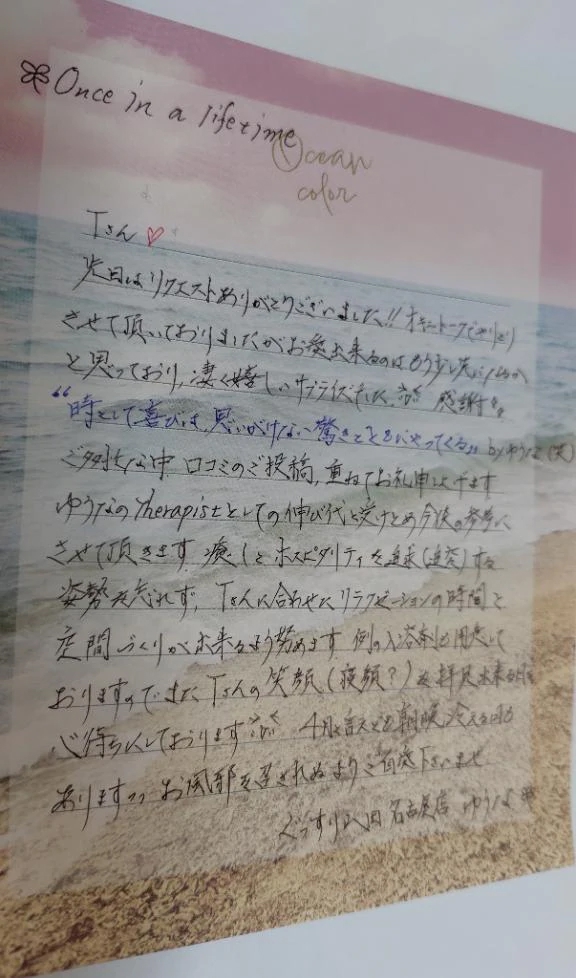 Once in a lifetime
Ocean
color
Tさん♡
先日はリクエストありがとうございました!! オキニトークでやりとり
させて頂いておりましたがお会い出来るのはもう少し先
と思っており、凄く嬉しいサプライズでした 感謝
“時として喜びは、思いがけない驚きとともにやってくる„ by ゆうな(笑)
ご多忙な中 口コミのご投稿、重ねてお礼申し上げます
ゆうなのTherapistとしての伸び代と受けとめ今後の参考に
させて頂きます 癒しとホスピタリティを追求(追究)する
姿勢を忘れず、Tさんに合わせたリラクゼーションの時間と
空間づくりが出来るよう努めます 例の入浴剤も用意して
おりますので、またTさんの笑顔(寝顔?)を拝見出来る日を
心待ちにしております 4月と言えども朝晩冷える日も
ありますっっ お風邪を召されぬようご自愛下さいませ
ぐっすり 名古屋店 ゆうな